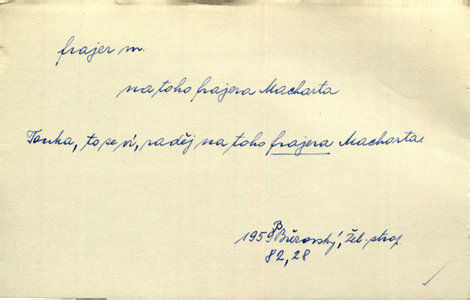 frajer m.
na toho frajera Macharta
Tonka, to se ví, raděj na toho frajera Macharta.
1959 Běhounský, Žel. strop
82, 28